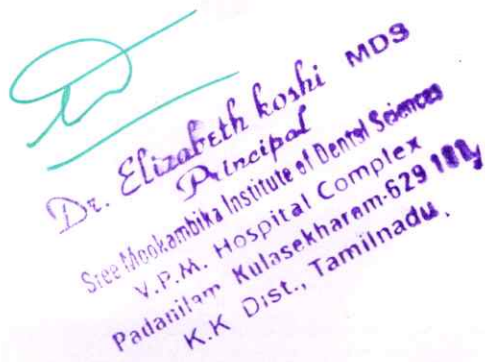 Dr. Elizabeth koshi MDS
Principal
Sree Mookambika Institute of Dental Sciences
V.P.M. Hospital Complex
Padanilam Kulasekharam-629
K.K Dist., Tamilnadu.